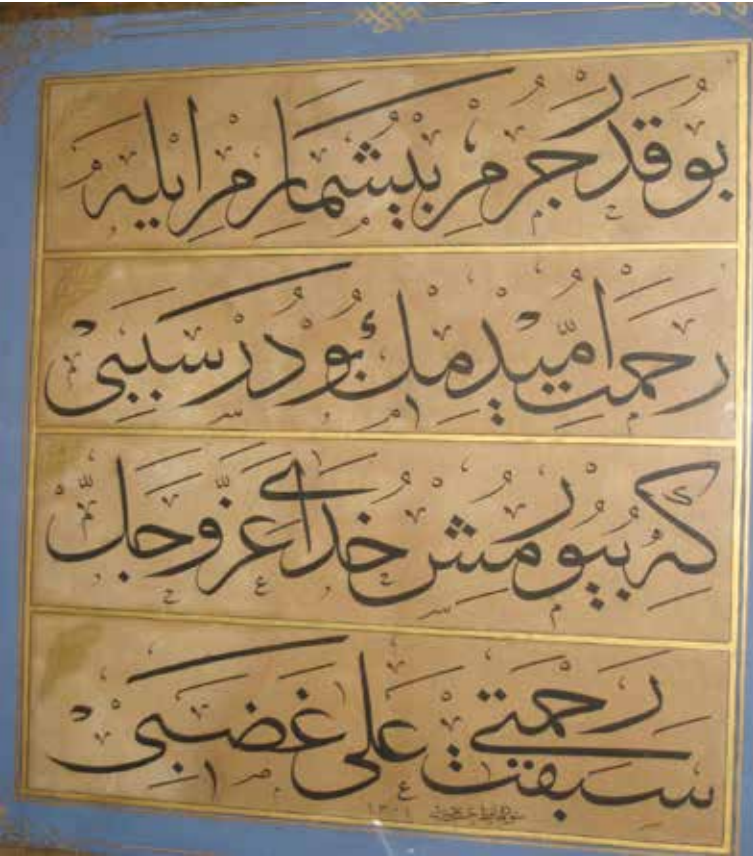 بو قدر جرم بيشمارم ايله
رحمت اميدمك بودر سببى
كه بيورمش خداى عز وجل
سبقت رحمتى على غضبى
١٣٠١